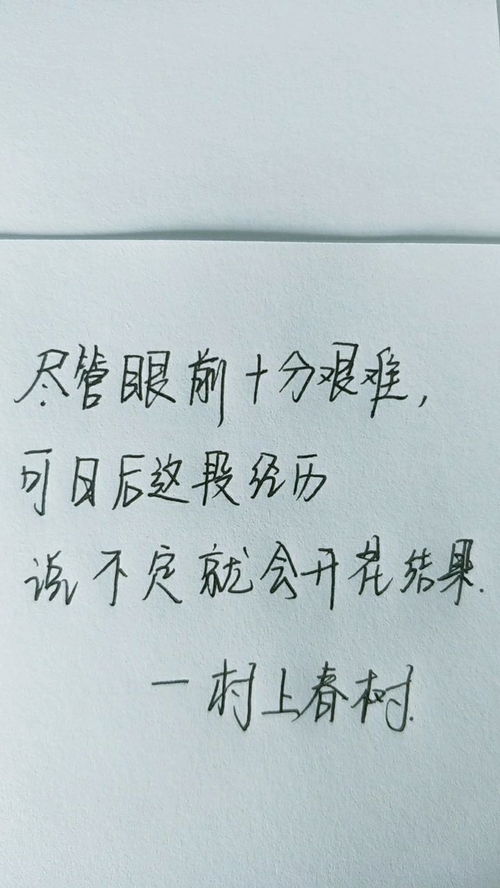 尽管眼前十分艰难,
可日后这段经历
说不定就会开花结果.
一村上春树.